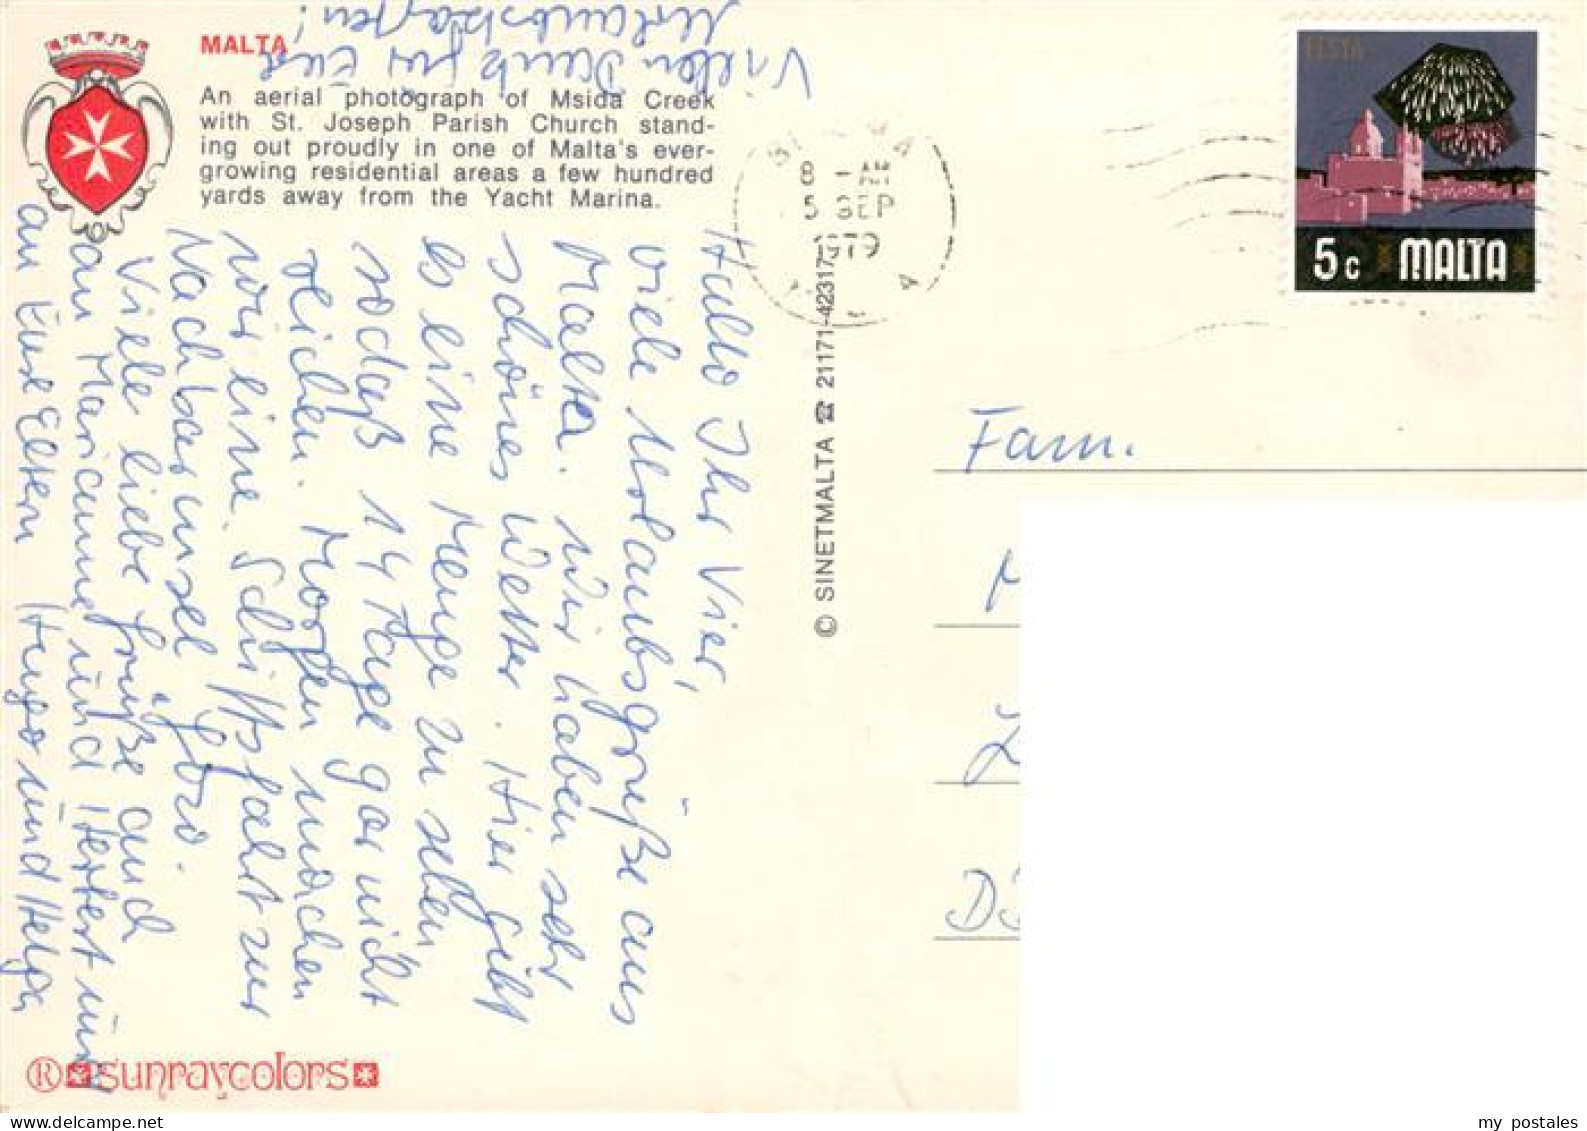 MALTA
An aerial photograph of Msida Creek
with St. Joseph Parish Church stand-
ing out proudly in one of Malta's ever-
growing residential areas a few hundred
yards away from the Yacht Marina.
Vielen Dank für Eure
Urlaubskarten!
Hallo Ihr Vier,
viele Urlaubsgrüße aus
Malta. Wir haben sehr
schönes Wetter. Hier gibt
es eine Menge zu sehen
sodaß 14 Tage gar nicht
reichen. Morgen machen
wir eine Schiffsfahrt zur
Nachbarinsel Gozo.
Viele liebe Grüße auch
an Marianne und Herbert und
an Eure Eltern Hugo und Helga
® sunraycolors
© SINETMALTA ☎ 21171-42317
8 - AM
5 SEP
1979
FESTA
5c MALTA
Fam.
my postales